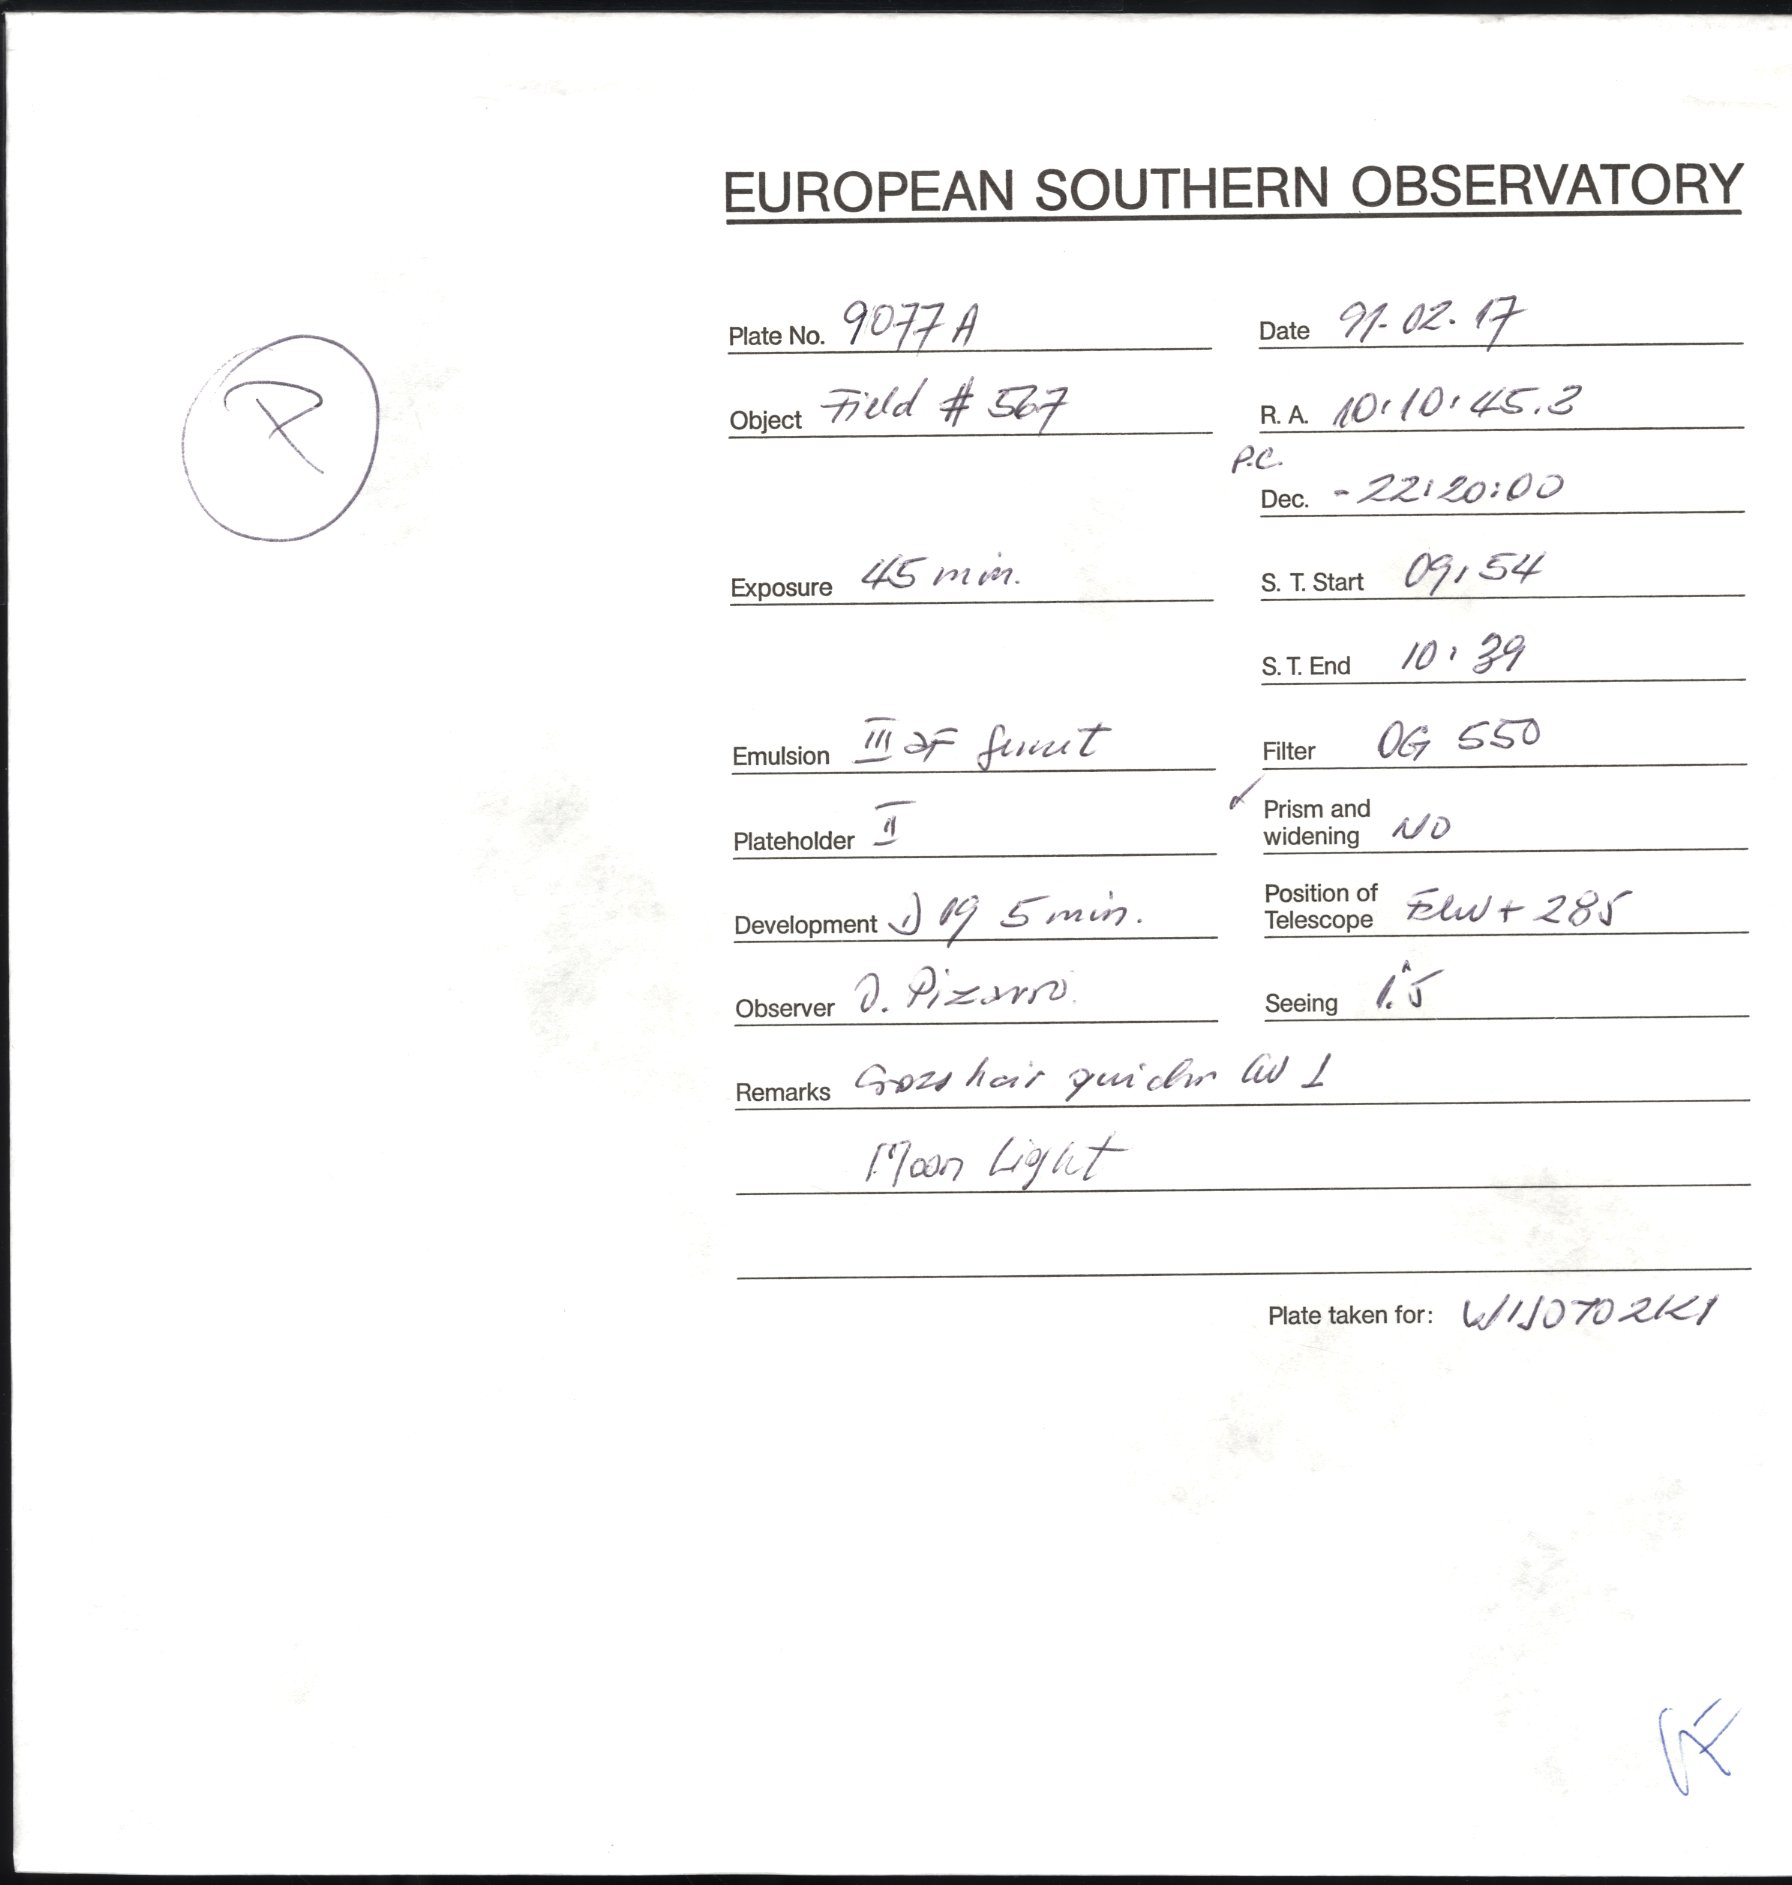 EUROPEAN SOUTHERN OBSERVATORY
Plate No. 9077A Date 91.02.17
R
Object Field # 567 R. A. 10:10:45.3
P.C.
Dec. -22:20:00
Exposure 45 min. S. T. Start 09:54
S. T. End 10:39
Emulsion III aF Filter OG 550
Plateholder II ✓ Prism and
widening NO
Development D 19 5 min. Position of
Telescope + 285
Observer O. Pizarro Seeing 1."5
Remarks hair
Moon Light
Plate taken for: